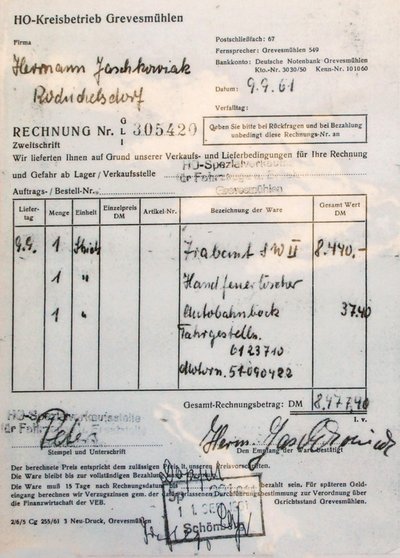 HO-Kreisbetrieb Grevesmühlen
Firma
Hermann Jaschkowiak
Postschließfach: 67
Fernsprecher: Grevesmühlen 549
Bankkonto: Deutsche Notenbank Grevesmühlen
Kto.-Nr. 3030/50 Kenn-Nr. 101060
Datum: 9.9.61
Verfalltag:
RECHNUNG Nr. G L I 305420
Zweitschrift
Geben Sie bitte bei Rückfragen und bei Bezahlung
unbedingt diese Rechnungs-Nr. an
Wir lieferten Ihnen auf Grund unserer Verkaufs- und Lieferbedingungen für Ihre Rechnung
und Gefahr ab Lager / Verkaufsstelle
HO-Spezialverkaufsstelle
für Fahrzeuge u.
Grevesmühlen
Auftrags- / Bestell-Nr.
Liefer-tag Menge Einheit Einzelpreis DM Artikel-Nr. Bezeichnung der Ware Gesamt Wert DM
9.9. 1 Stück Trabant II 8.440.-
1 " Handfeuerlöscher
1 " Autobahnbock 37.40
Fahrgestells.
0123710
Motorn.
Gesamt-Rechnungsbetrag: DM 8.477,40
HO-Spezialverkaufsstelle
für Fahrzeuge
I. v.
Stempel und Unterschrift
Den Empfang der Ware bestätigt
Der berechnete Preis entspricht dem zulässigen Preis lt. unseren Preisvorschriften.
Die Ware bleibt bis zur vollständigen Bezahlung
Die Ware muß 15 Tage nach Rechnungsdatum bezahlt sein. Für späteren Geld-
eingang berechnen wir Verzugszinsen gem. der Durchführungsbestimmung zur Verordnung über
die Finanzwirtschaft der VEB. Gerichtsstand Grevesmühlen.
2/6/5 Cg 255/61 3 Neu-Druck, Grevesmühlen
Schönberg